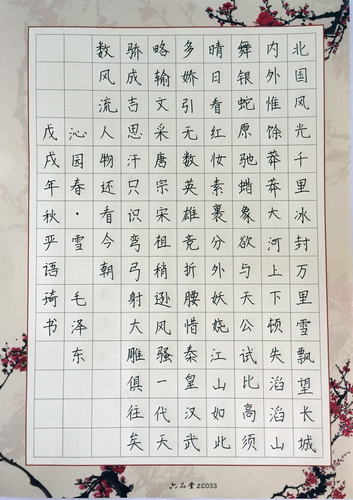 北国风光千里冰封万里雪飘望长城
内外惟馀莽莽大河上下顿失滔滔山
舞银蛇原驰蜡象欲与天公试比高须
晴日看红妆素裹分外妖娆江山如此
多娇引无数英雄竞折腰惜秦皇汉武
略输文采唐宗宋祖稍逊风骚一代天
骄成吉思汗只识弯弓射大雕俱往矣
数风流人物还看今朝
沁园春·雪 毛泽东
戊戌年秋严语琦书
六品堂 ZC033